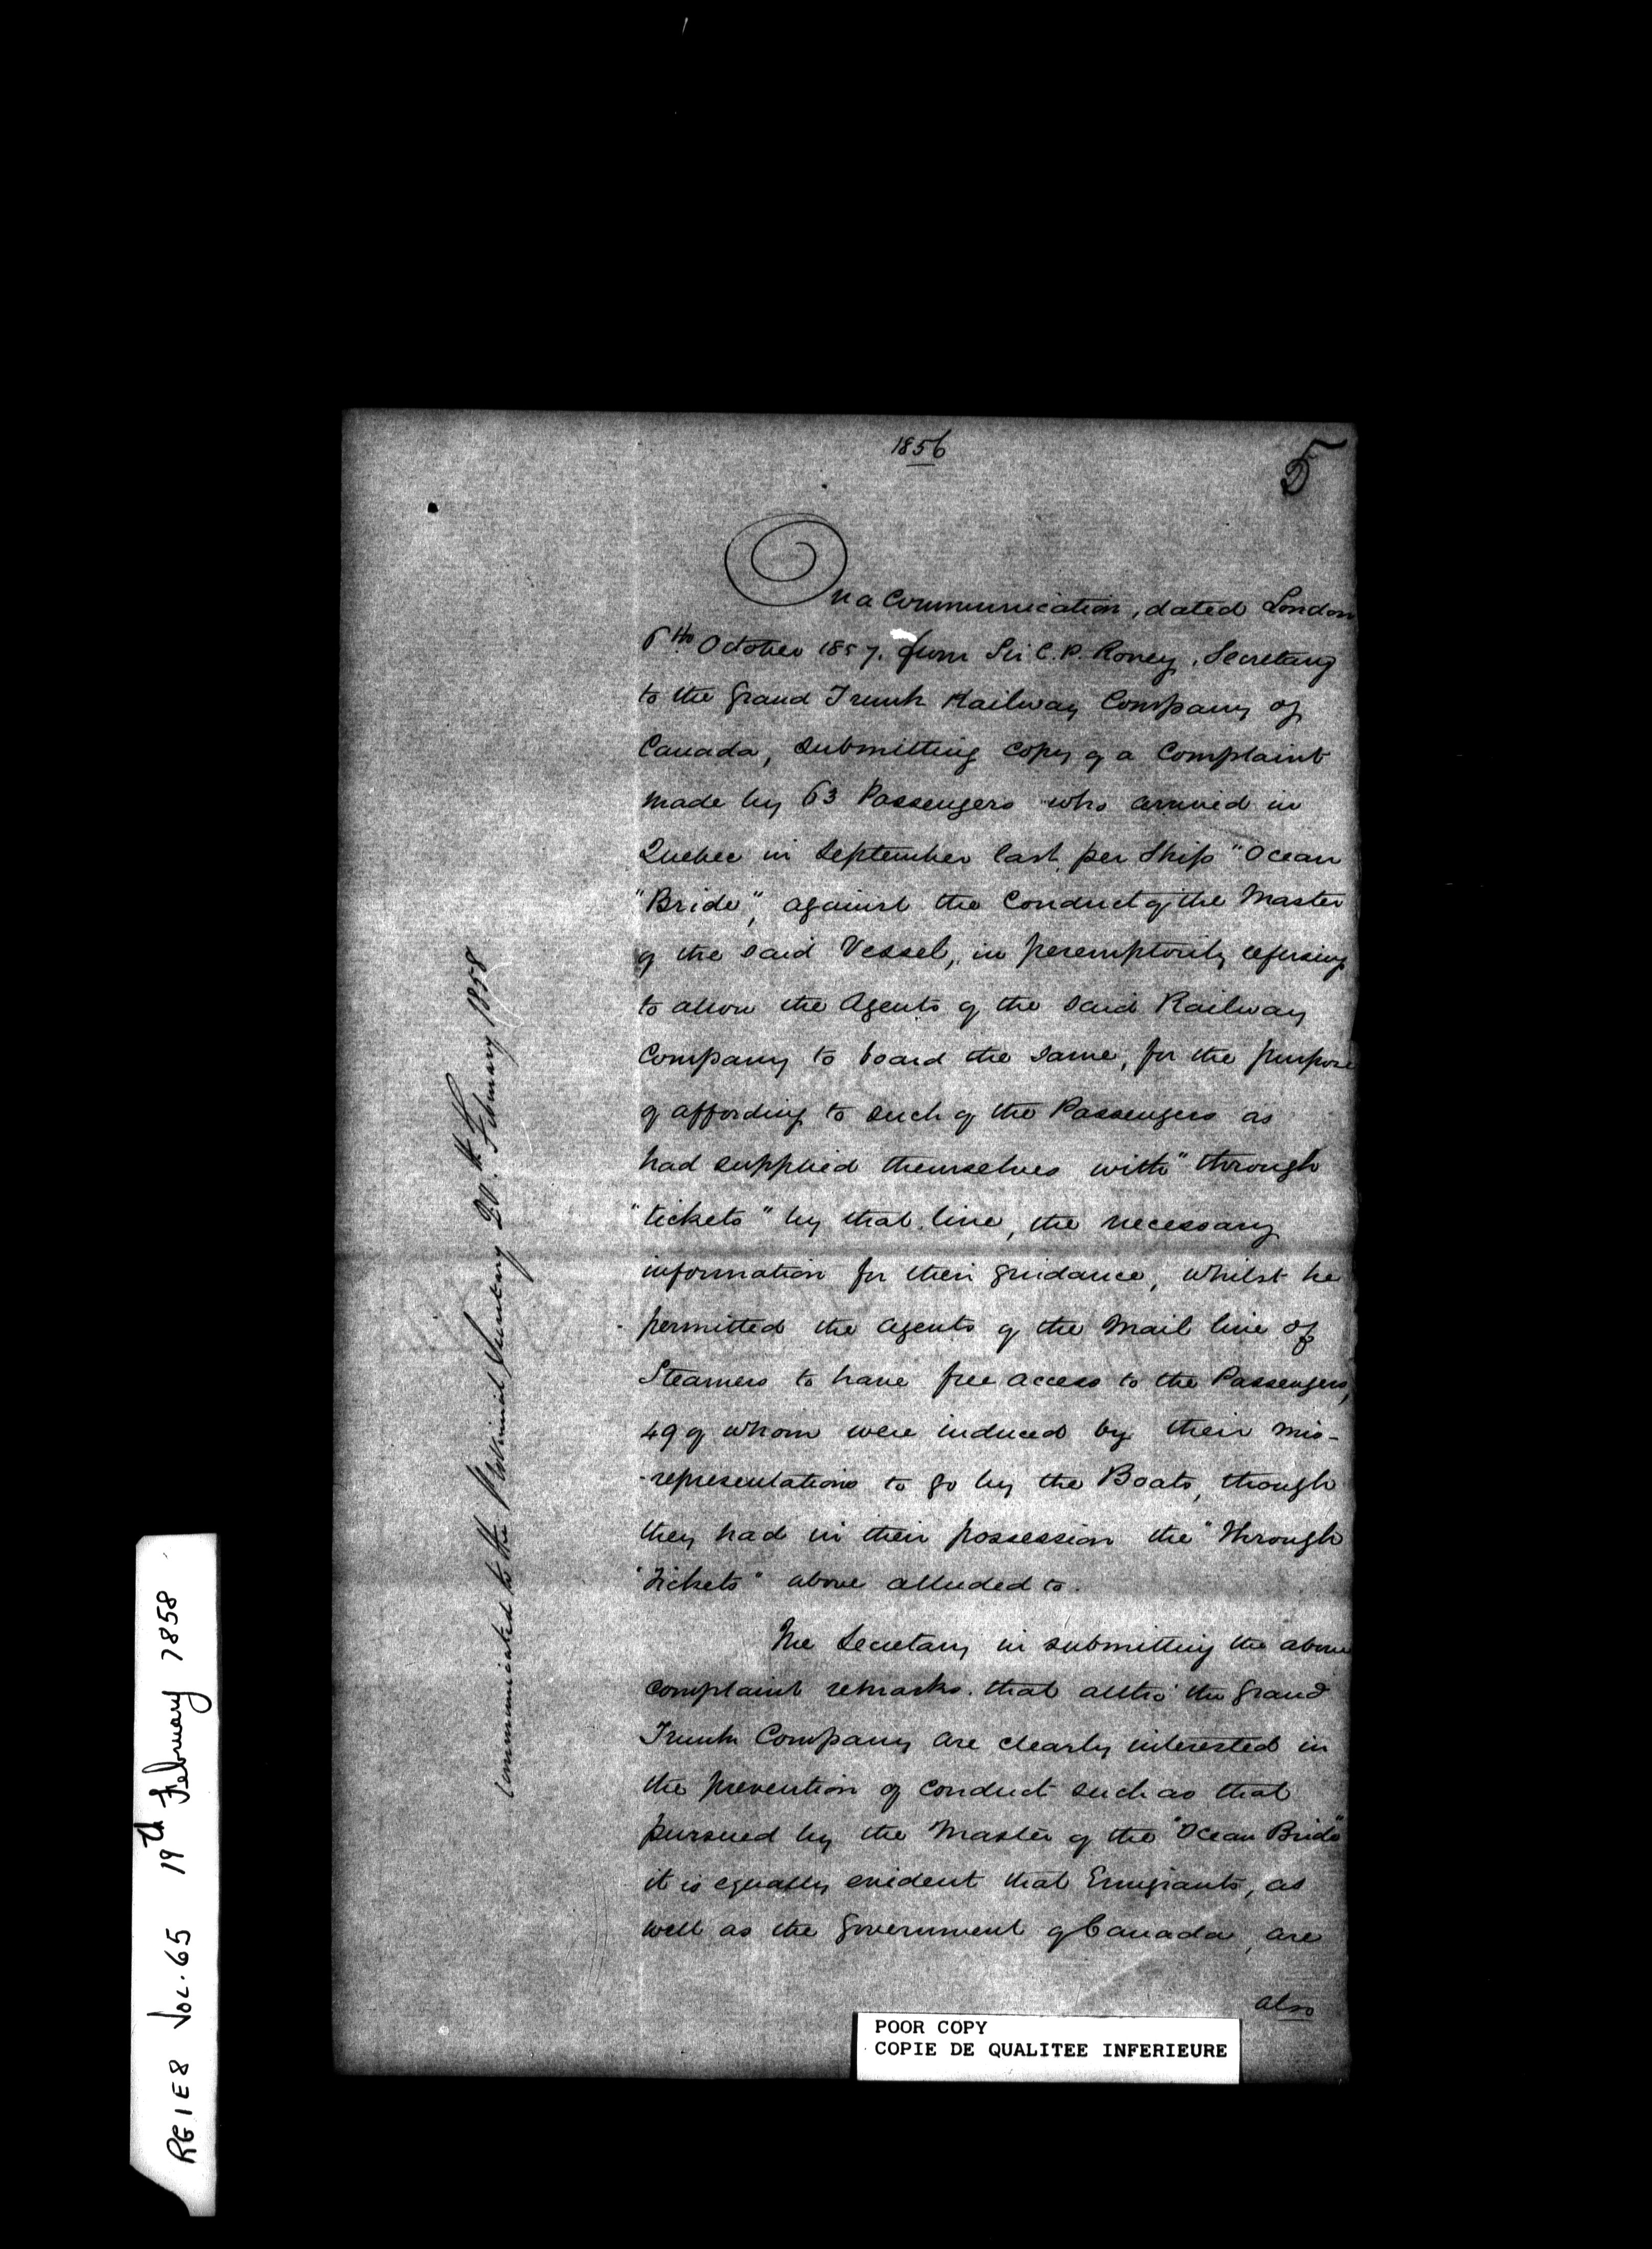 1856
5
On a Communication, dated London
6th October 1857. from Sir C. P. Roney, Secretary
to the Grand Trunk Railway Company of
Canada, submitting copy of a Complaint
made by 63 Passengers who arrived in
Quebec in September last per Ship "Ocean
"Bride", against the Conduct of the Master
of the said Vessel, in peremptorily refusing
to allow the Agents of the said Railway
Company to board the same, for the purpose
of affording to such of the Passengers as
had supplied themselves with "through
"tickets" by that line, the necessary
information for their guidance, whilst he
permitted the agents of the Mail line of
Steamers to have free access to the Passengers,
49 of whom were induced by their mis-
-representations to go by the Boats, though
they had in their possession the "Through
"Tickets" above alluded to.
The Secretary in submitting the above
complaint remarks. that altho' the Grand
Trunk Company are clearly interested in
the prevention of conduct such as that
pursued by the Master of the "Ocean Bride"
it is equally evident that Emigrants, as
well as the Government of Canada, are
also
Communicated to the Provincial Secretary 20th February 1858
POOR COPY
COPIE DE QUALITEE INFERIEURE
RG1E8 VOL.65 19th February 1858